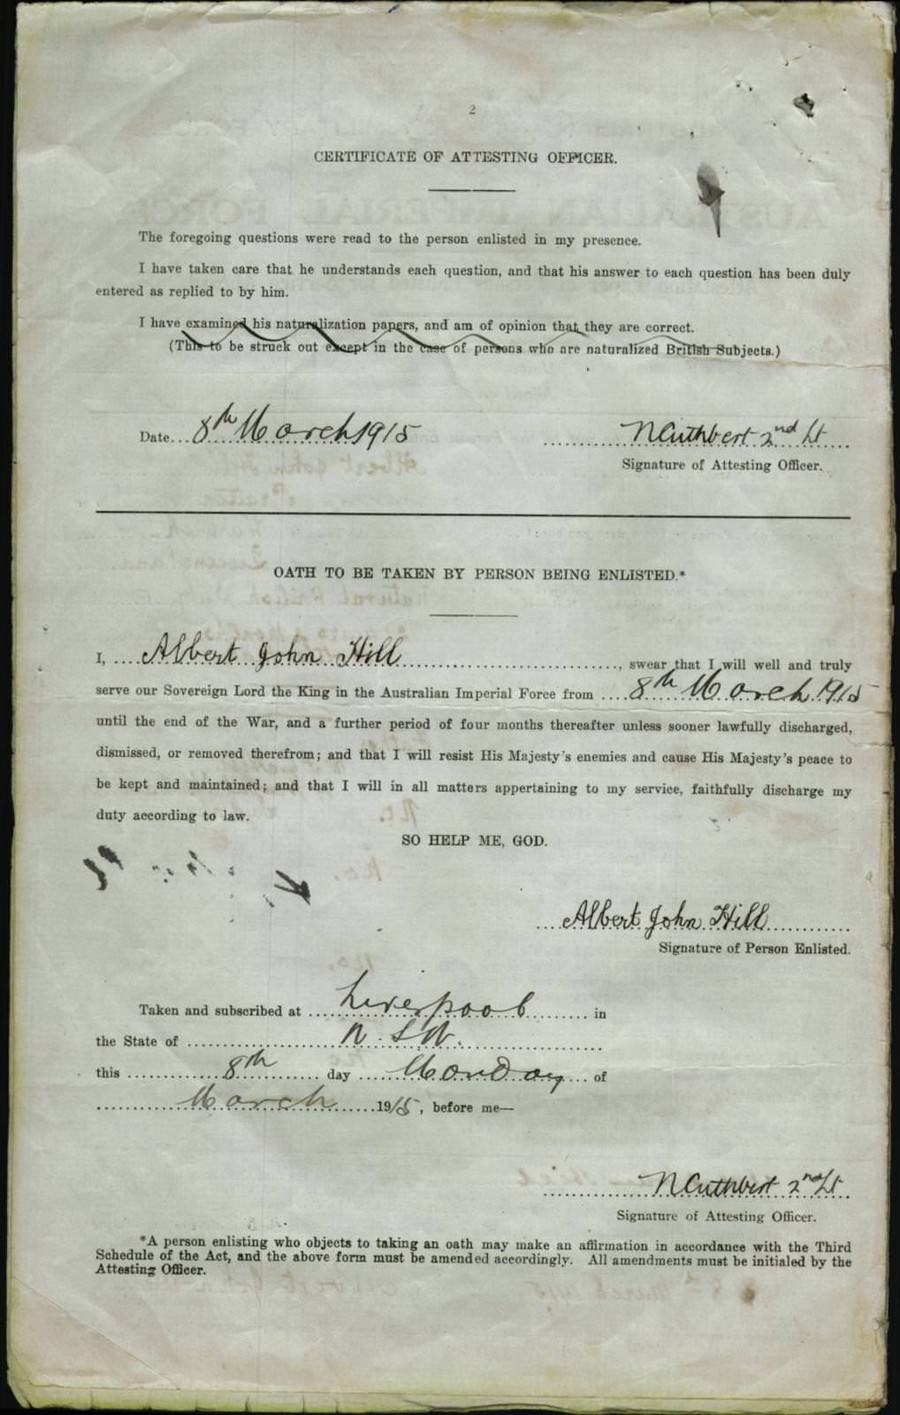 2
CERTIFICATE OF ATTESTING OFFICER.
The foregoing questions were read to the person enlisted in my presence.
I have taken care that he understands each question, and that his answer to each question has been duly
entered as replied to by him.
I have examined his naturalization papers, and am of opinion that they are correct.
(This to be struck out except in the case of persons who are naturalized British Subjects.)
Date 8th March 1915 N Cuthbert 2nd Lt
Signature of Attesting Officer.
OATH TO BE TAKEN BY PERSON BEING ENLISTED.*
I, Albert John Hill, swear that I will well and truly
serve our Sovereign Lord the King in the Australian Imperial Force from 8th March 1915
until the end of the War, and a further period of four months thereafter unless sooner lawfully discharged,
dismissed, or removed therefrom; and that I will resist His Majesty's enemies and cause His Majesty's peace to
be kept and maintained; and that I will in all matters appertaining to my service, faithfully discharge my
duty according to law.
SO HELP ME, GOD.
Albert John Hill
Signature of Person Enlisted.
Taken and subscribed at Liverpool in
the State of N.S.W.
this 8th day Monday of
March 1915, before me—
N Cuthbert 2nd Lt
Signature of Attesting Officer.
*A person enlisting who objects to taking an oath may make an affirmation in accordance with the Third
Schedule of the Act, and the above form must be amended accordingly. All amendments must be initialed by the
Attesting Officer.